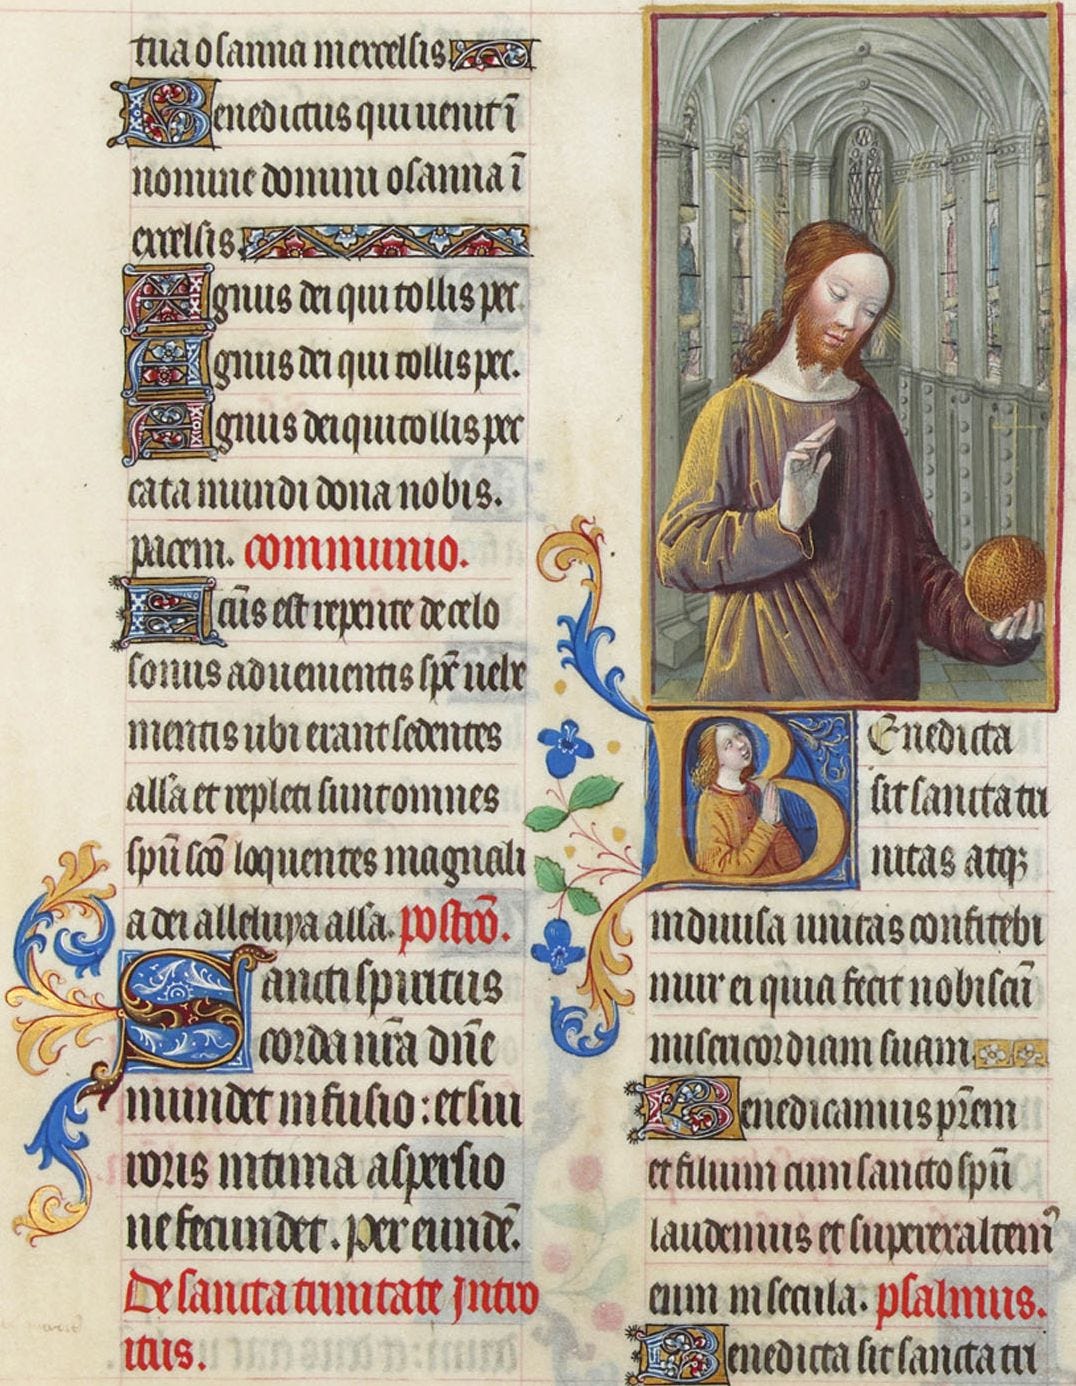 tua osanna in excelsis
Benedictus qui uenit ī
nomine domini osanna ī
excelsis.
Agnus dei qui tollis pec.
Agnus dei qui tollis pec.
Agnus dei qui tollis pec
cata mundi dona nobis.
pacem. communio.
Factūs est repente de celo
sonus aduenientis spc̄ uehe
mentis ubi erant sedentes
alla et repleti sunt omnes
spū sc̄o loquentes magnali
a dei alleluya alla. postcō.
Sancti spiritus
corda nr̄a dn̄e
mundet infusio : et sui
roris intima aspersio
ne fecundet. Per eundē.
De sancta trinitate Intro
itus.
Benedicta
sit sancta tri
nitas atqꝫ
indiuisa unitas confitebi
mur ei quia fecit nobiscū
misericordiam suam
Benedicamus pr̄em
et filium cum sancto spū
laudemus et superexaltem⁹
eum in secula. psalmus.
Benedicta sit sancta tri